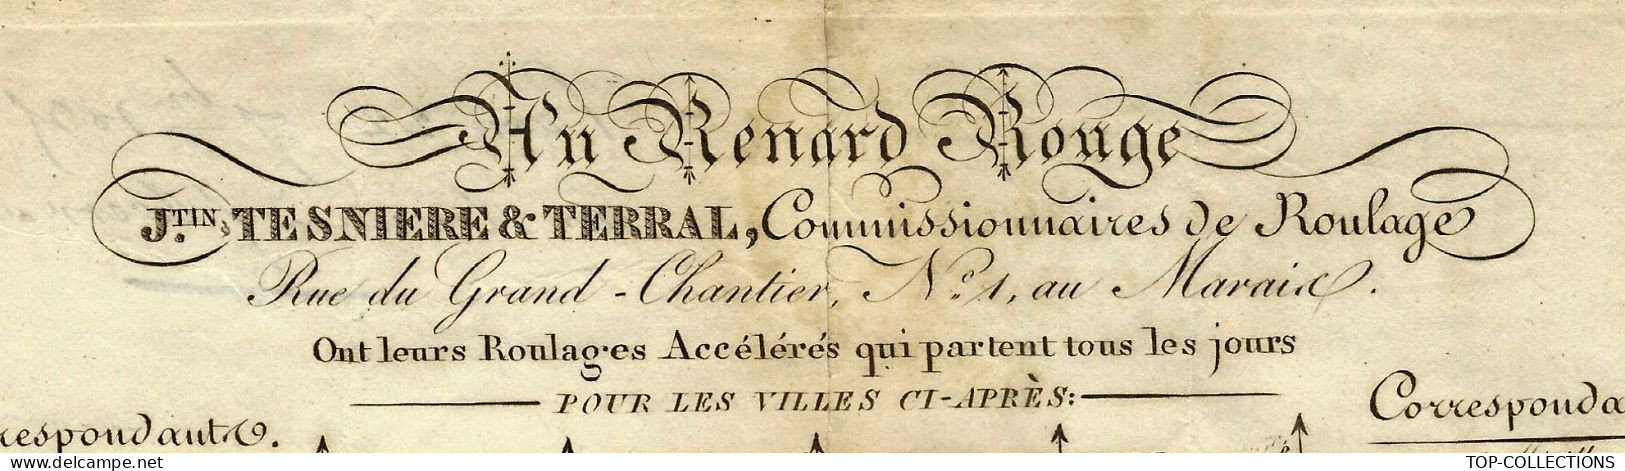 Au Renard Rouge
J.TIN TESNIERE & TERRAL, Commissionnaires de Roulage
Rue du Grand-Chantier, N.o 1, au Marais.
Ont leurs Roulages Accélérés qui partent tous les jours
POUR LES VILLES CI-APRÈS:
respondants.
Corresponda
TOP-COLLECTIONS